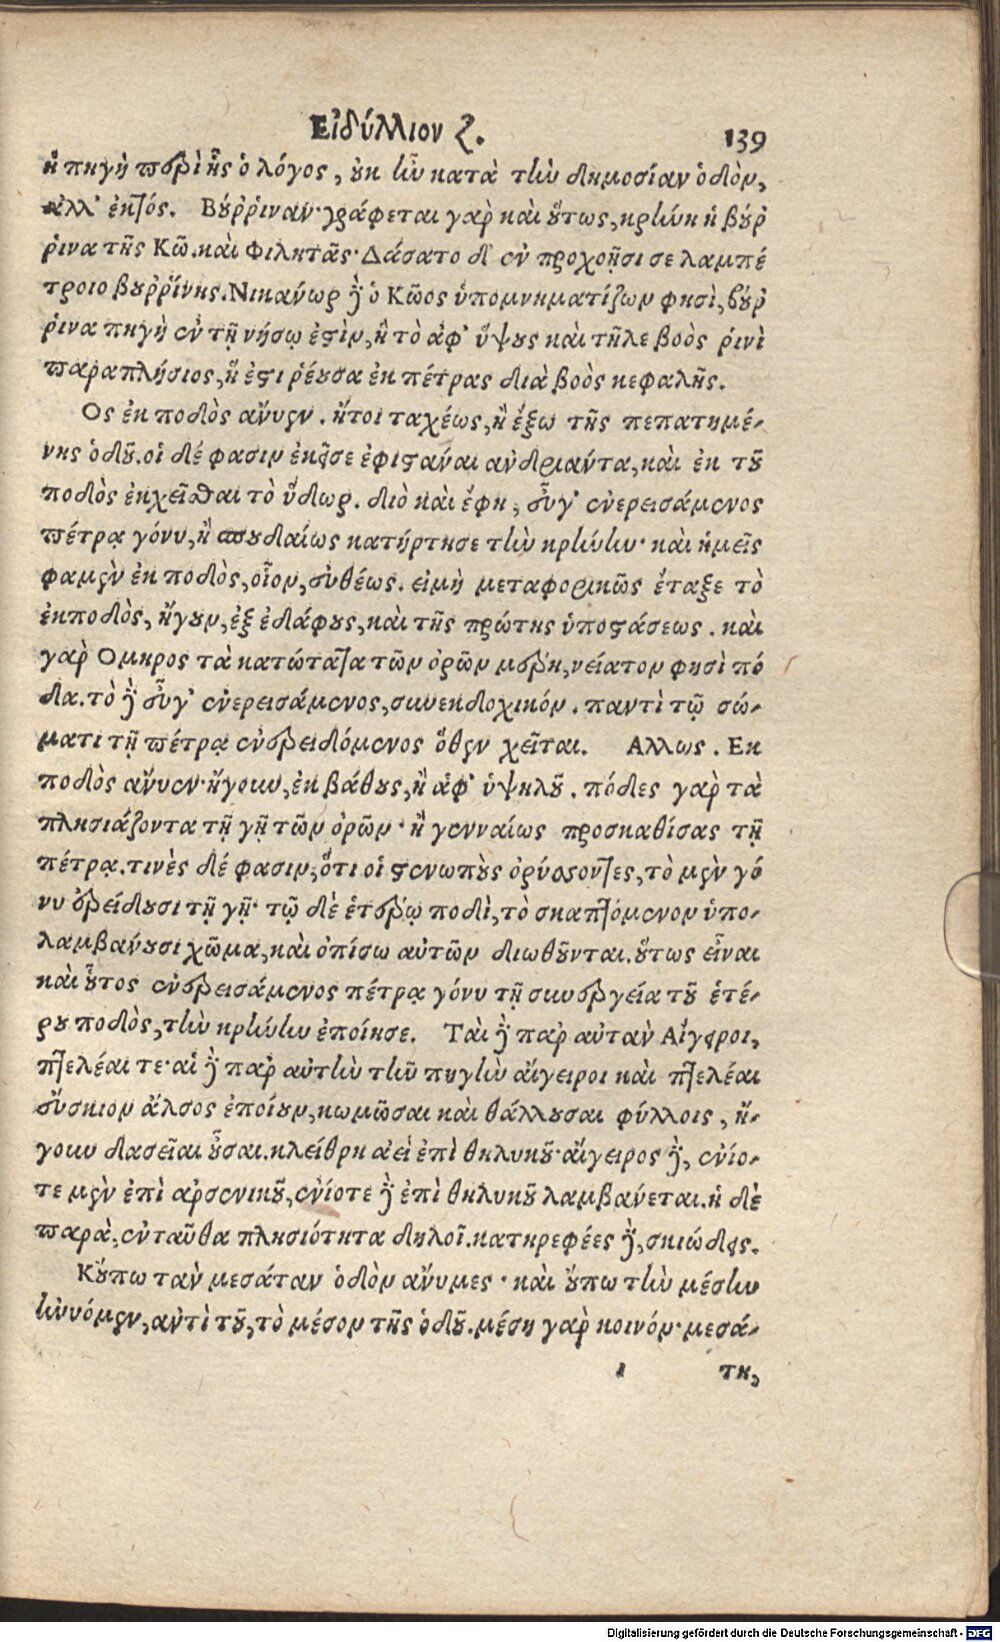 Εἰδύλλιον ζ. 139
ἡ πηγὴ περὶ ἧς ὁ λόγος, οὐκ ἦν κατὰ τὴν δημοσίαν ὁδὸν,
ἀλλ' ἐκτός. Βύῤῥιναν· γράφεται γὰρ καὶ οὕτως, κρήνη ἡ βύῤ
ῥινα τῆς Κῶ. καὶ Φιλητᾶς· Δάσατο δ' ἐν προχοῇσι σε λαμπέ
τροιο βυῤῥίνης. Νικάνωρ δὲ ὁ Κῶος ὑπομνηματίζων φησὶ, βύῤ
ῥινα πηγὴ ἐν τῇ νήσῳ ἐστὶν, ἢ τὸ ἀφ' ὕψους καὶ τῆλε βοὸς ῥινὶ
παραπλήσιος, ἥ ἐστι ῥέουσα ἐκ πέτρας διὰ βοὸς κεφαλῆς.
Ος ἐκ ποδὸς ἄνυεν. ἤτοι ταχέως, ἢ ἔξω τῆς πεπατημέ-
νης ὁδοῦ. οἱ δέ φασιν ἐκεῖσε ἐφιστάναι ἀνδριάντα, καὶ ἐκ τοῦ
ποδὸς ἐκχεῖσθαι τὸ ὕδωρ. διὸ καὶ ἔφη, εὖγ' ἐνερεισάμενος
πέτρᾳ γόνυ, ἢ σπουδαίως κατήρτησε τὴν κρήνην· καὶ ἡμεῖς
φαμὲν ἐκ ποδὸς, οἷον, εὐθέως. εἰμὴ μεταφορικῶς ἔταξε τὸ
ἐκποδὸς, ἤγουν, ἐξ ἐδάφους, καὶ τῆς πρώτης ὑποστάσεως. καὶ
γὰρ Ομηρος τὰ κατώτατα τῶν ὀρῶν μέρη, νείατον φησὶ πό
δα. τὸ δὲ εὖγ' ἐνερεισάμενος, συνεκδοχικόν. παντὶ τῷ σώ-
ματι τῇ πέτρᾳ ἐνερειδόμενος ὅθεν χεῖται. Αλλως. Εκ
ποδὸς ἄνυεν· ἤγουν, ἐκ βάθους, ἢ ἀφ' ὑψηλοῦ. πόδες γὰρ τὰ
πλησιάζοντα τῇ γῇ τῶν ὀρῶν· ἢ γενναίως προσκαθίσας τῇ
πέτρᾳ. τινὲς δέ φασιν, ὅτι οἱ στενωποὺς ὀρύσσοντες, τὸ μὲν γό
νυ ἐρείδουσι τῇ γῇ· τῷ δὲ ἑτέρῳ ποδὶ, τὸ σκαπτόμενον ὑπο-
λαμβάνουσι χῶμα, καὶ ὀπίσω αὐτῶν διωθοῦνται. οὕτως εἶναι
καὶ οὗτος ἐνερεισάμενος πέτρᾳ γόνυ τῇ συνεργείᾳ τοῦ ἑτέ-
ρου ποδὸς, τὴν κρήνην ἐποίησε. Ταὶ δὲ παρ αὐτὰν Αἴγειροι,
πτελέαι τε· αἱ δὲ παρ αὐτὴν τὴν πηγὴν αἴγειροι καὶ πτελέαι
εὔσκιον ἄλσος ἐποίουν, κωμῶσαι καὶ θάλλουσαι φύλλοις, ἤ-
γουν δασεῖαι οὖσαι. κλείθρη ἀεὶ ἐπὶ θηλυκοῦ· αἴγειρος δὲ, ἐνίο-
τε μὲν ἐπὶ ἀρσενικοῦ, ἐνίοτε δὲ ἐπὶ θηλυκοῦ λαμβάνεται. ἡ δὲ
παρὰ, ἐνταῦθα πλησιότητα δηλοῖ. κατηρεφέες δὲ, σκιώδεις.
Κοὔπω τὰν μεσάταν ὁδὸν ἄνυμες· καὶ οὔπω τὴν μέσην
ἠνυόμεν, ἀντὶ τοῦ, τὸ μέσον τῆς ὁδοῦ. μέση γὰρ κοινόν· μεσά-
ι τη,
Digitalisierung gefördert durch die Deutsche Forschungsgemeinschaft - DFG